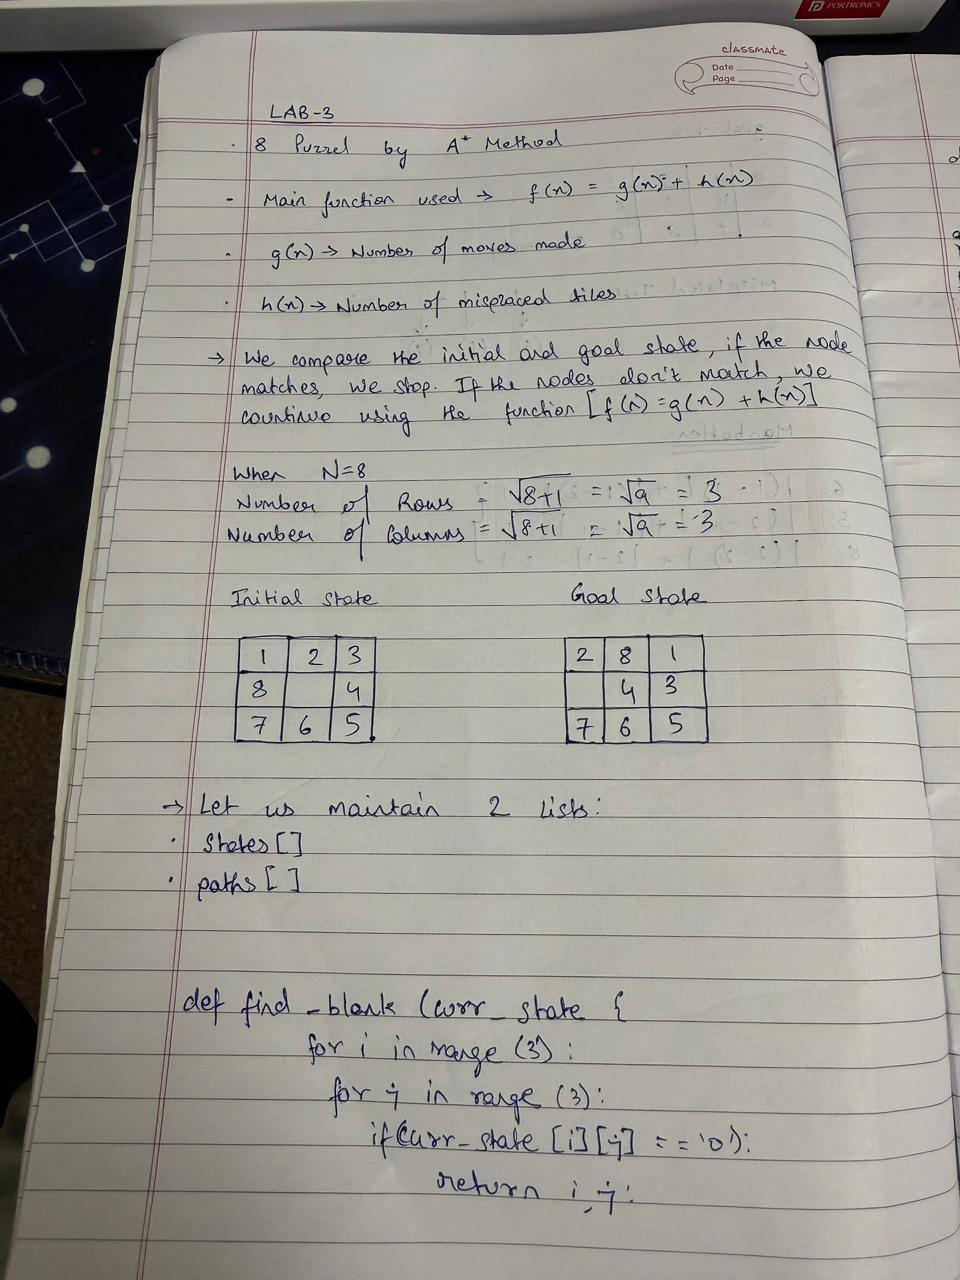 PORTRONICS
classmate
Date
Page
LAB-3
· 8 Puzzel by A* Method
- Main function used → f(n) = g(n) + h(n)
· g(n) → Number of moves made
· h(n) → Number of misplaced tiles
→ We compare the initial and goal state, if the node
matches, we stop. If the nodes don't match, we
countinue using the function [f(n) = g(n) + h(n)]
When N=8
Number of Rows = √8+1 = √9 = 3
Number of Columns = √8+1 = √9 = 3
Initial state Goal state
1 2 3 2 8 1
8 4 4 3
7 6 5 7 6 5
→ Let us maintain 2 lists:
· States []
· paths []
def find_blank (curr_state {
for i in range (3):
for j in range (3):
if (curr_state [i][j] == '0'):
return i, j: